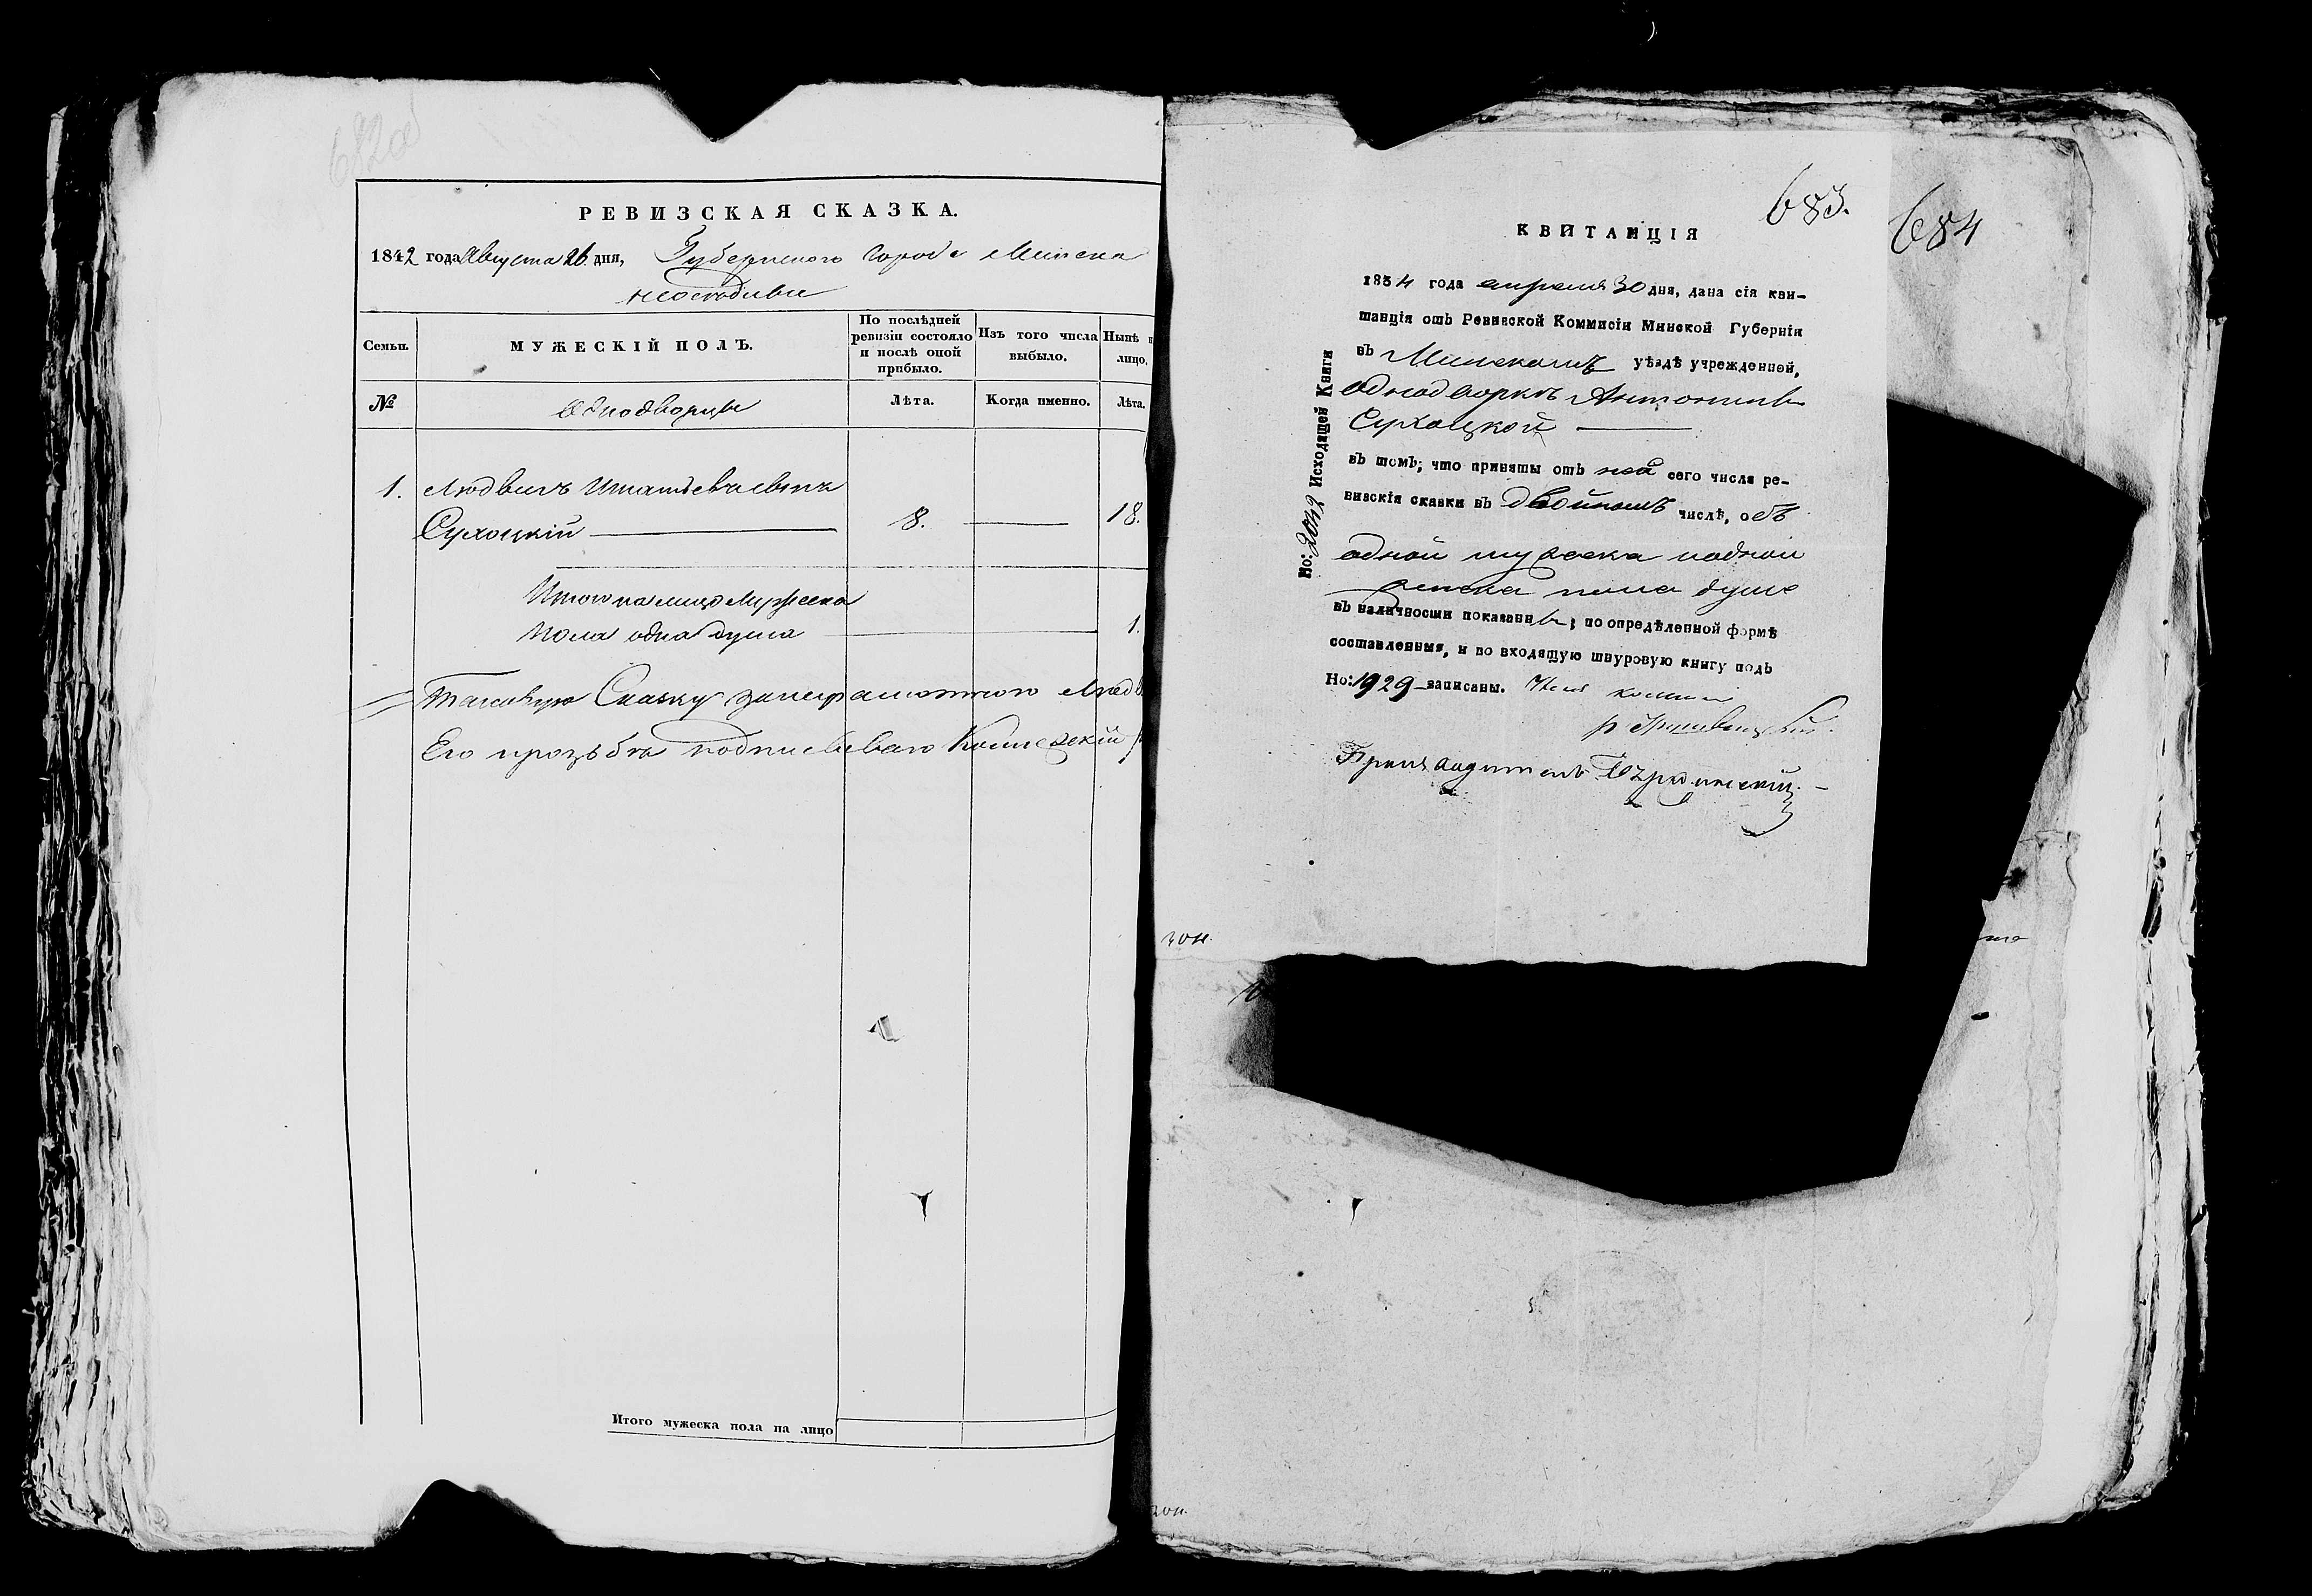 682об
РЕВИЗСКАЯ СКАЗКА.
1842 года Августа 26 дня, Губернского Города Минска
Семьи.
МУЖЕСКІЙ ПОЛЪ.
По послѣдней ревизіи состояло и послѣ оной прибыло.
Изъ того числа выбыло.
Нынѣ н
лицо.
№
Однодворцы
Лѣта.
Когда именно.
Лѣта.
1. Людвигъ
Сухоцкій 8. 18.
Итого на лицо Мужеска
пола одна душа 1.
Таковую Сказку
Его прозьбѣ
Итого мужеска пола на лицо
683.
684
КВИТАНЦІЯ
1854 года апреля 30 дня, дана сія кви-
танція отъ Ревизской Коммисіи Минской Губерніи
въ Минскомъ уѣздѣ учрежденной,
однодворкѣ Антонинѣ
Сухоцкой
въ томъ; что приняты отъ ней сего числа ре-
визскія сказки въ двойномъ числѣ, объ
одной мужеска и одной
женска пола душе
въ наличности показанн ; по опредѣленной формѣ
составленныя, и во входящую шнуровую книгу подь
Но: 1929 записаны.
Но: Исходящей Книги